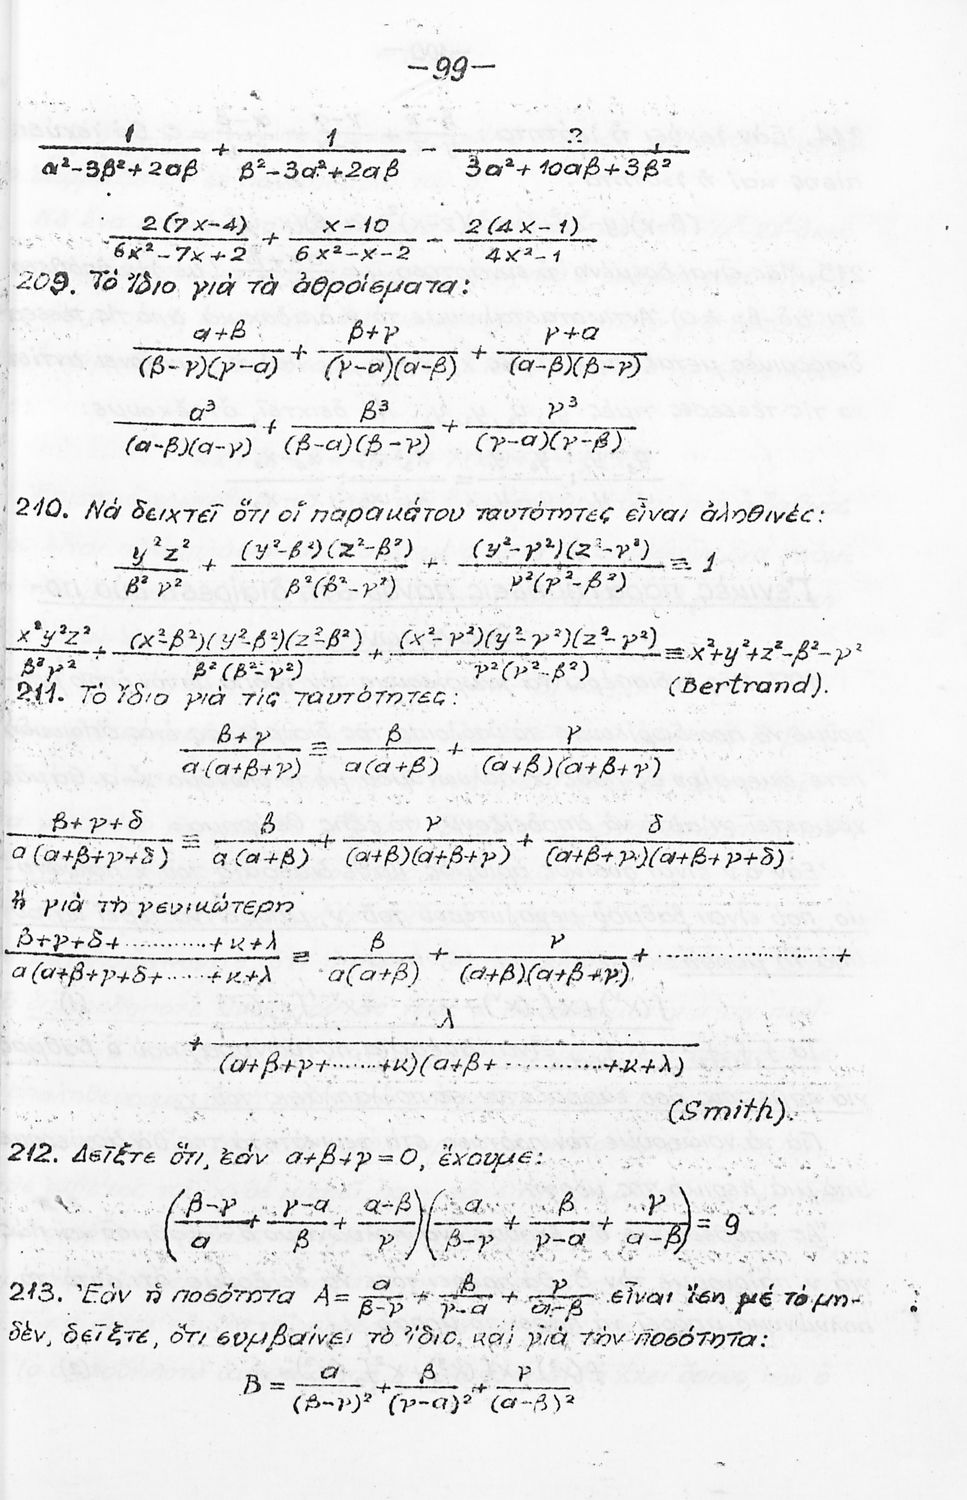 —99—
1/(α²-3β²+2αβ) + 1/(β²-3α²+2αβ) - ?/(3α²+10αβ+3β²)
2(7x-4)/(6x²-7x+2) + (x-10)/(6x²-x-2) - 2(4x-1)/(4x²-1)
209. Τό ἴδιο γιά τὰ ἀθροίσματα:
(α+β)/((β-γ)(γ-α)) + (β+γ)/((γ-α)(α-β)) + (γ+α)/((α-β)(β-γ))
α³/((α-β)(α-γ)) + β³/((β-α)(β-γ)) + γ³/((γ-α)(γ-β))
210. Νά δειχτεῖ ὅτι οἱ παρακάτου ταυτότητες εἶναι ἀληθινές:
y²z²/(β²γ²) + (y²-β²)(z²-β²)/(β²(β²-γ²)) + (y²-γ²)(z²-γ²)/(γ²(γ²-β²)) ≡ 1
x²y²z²/(β²γ²) + (x²-β²)(y²-β²)(z²-β²)/(β²(β²-γ²)) + (x²-γ²)(y²-γ²)(z²-γ²)/(γ²(γ²-β²)) ≡ x²+y²+z²-β²-γ²
(Bertrand).
211. Τό ἴδιο γιά τίς ταυτότητες:
(β+γ)/(α(α+β+γ)) ≡ β/(α(α+β)) + γ/((α+β)(α+β+γ))
(β+γ+δ)/(α(α+β+γ+δ)) ≡ β/(α(α+β)) + γ/((α+β)(α+β+γ)) + δ/((α+β+γ)(α+β+γ+δ))
ἤ γιά τή γενικώτερη
(β+γ+δ+...........+κ+λ)/(α(α+β+γ+δ+......+κ+λ) ≡ β/(α(α+β)) + γ/((α+β)(α+β+γ)) + .................... +
+ λ/((α+β+γ+......+κ)(α+β+............+κ+λ))
(Smith).
212. Δεῖξτε ὅτι, ἐάν α+β+γ=0, ἔχουμε:
((β-γ)/α + (γ-α)/β + (α-β)/γ)(α/(β-γ) + β/(γ-α) + γ/(α-β)) = 9
213. Ἐάν ἡ ποσότητα A= α/(β-γ) + β/(γ-α) + γ/(α-β) εἶναι ἴση μέ τό μη-
δέν, δεῖξτε, ὅτι συμβαίνει τό ἴδιο καί γιά την ποσότητα:
B = α/(β-γ)² + β/(γ-α)² + γ/(α-β)²